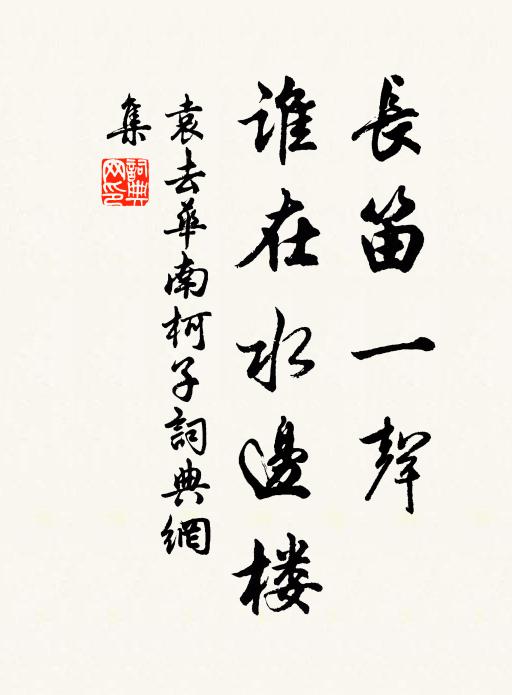 長笛一聲
誰在水邊楼
袁去華南柯子詞典網
集
詞典网印